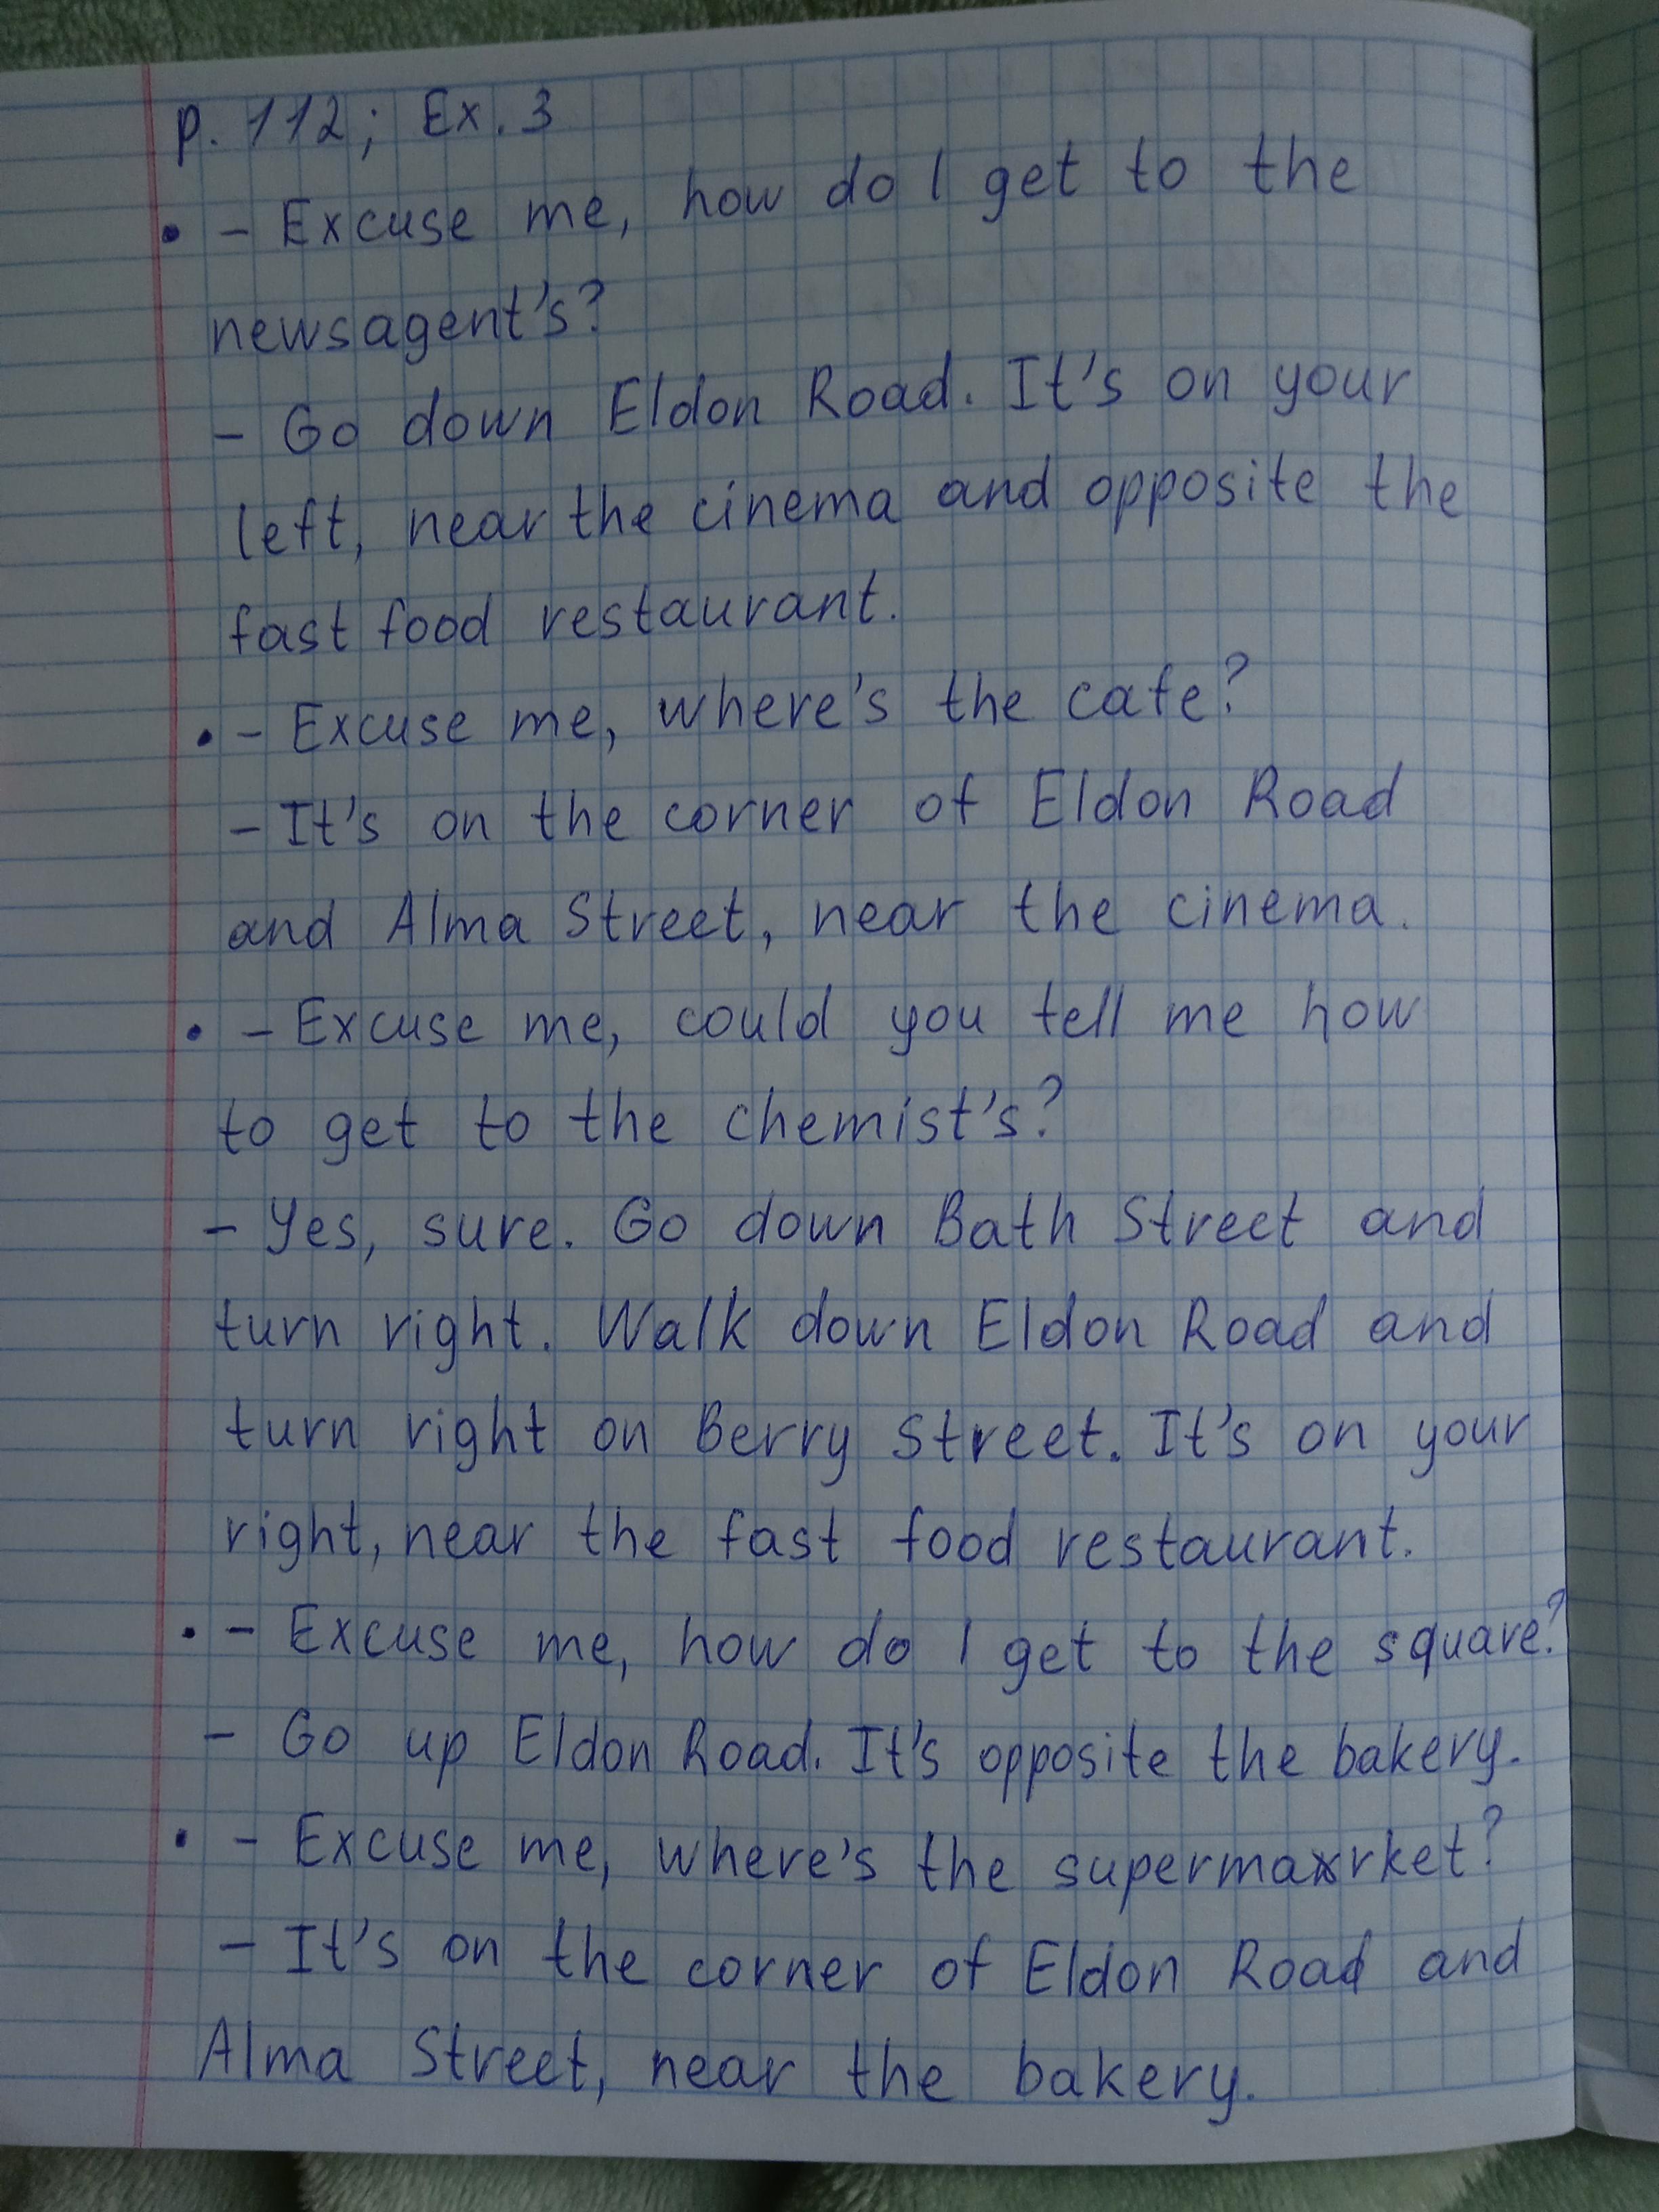 p. 112; Ex. 3
• – Excuse me, how do I get to the
newsagent's?
– Go down Eldon Road. It's on your
left, near the cinema and opposite the
fast food restaurant.
• – Excuse me, where's the cafe?
– It's on the corner of Eldon Road
and Alma Street, near the cinema.
• – Excuse me, could you tell me how
to get to the chemist's?
– Yes, sure. Go down Bath Street and
turn right. Walk down Eldon Road and
turn right on Berry Street. It's on your
right, near the fast food restaurant.
• – Excuse me, how do I get to the square?
– Go up Eldon Road. It's opposite the bakery.
• – Excuse me, where's the supermarket?
– It's on the corner of Eldon Road and
Alma Street, near the bakery.